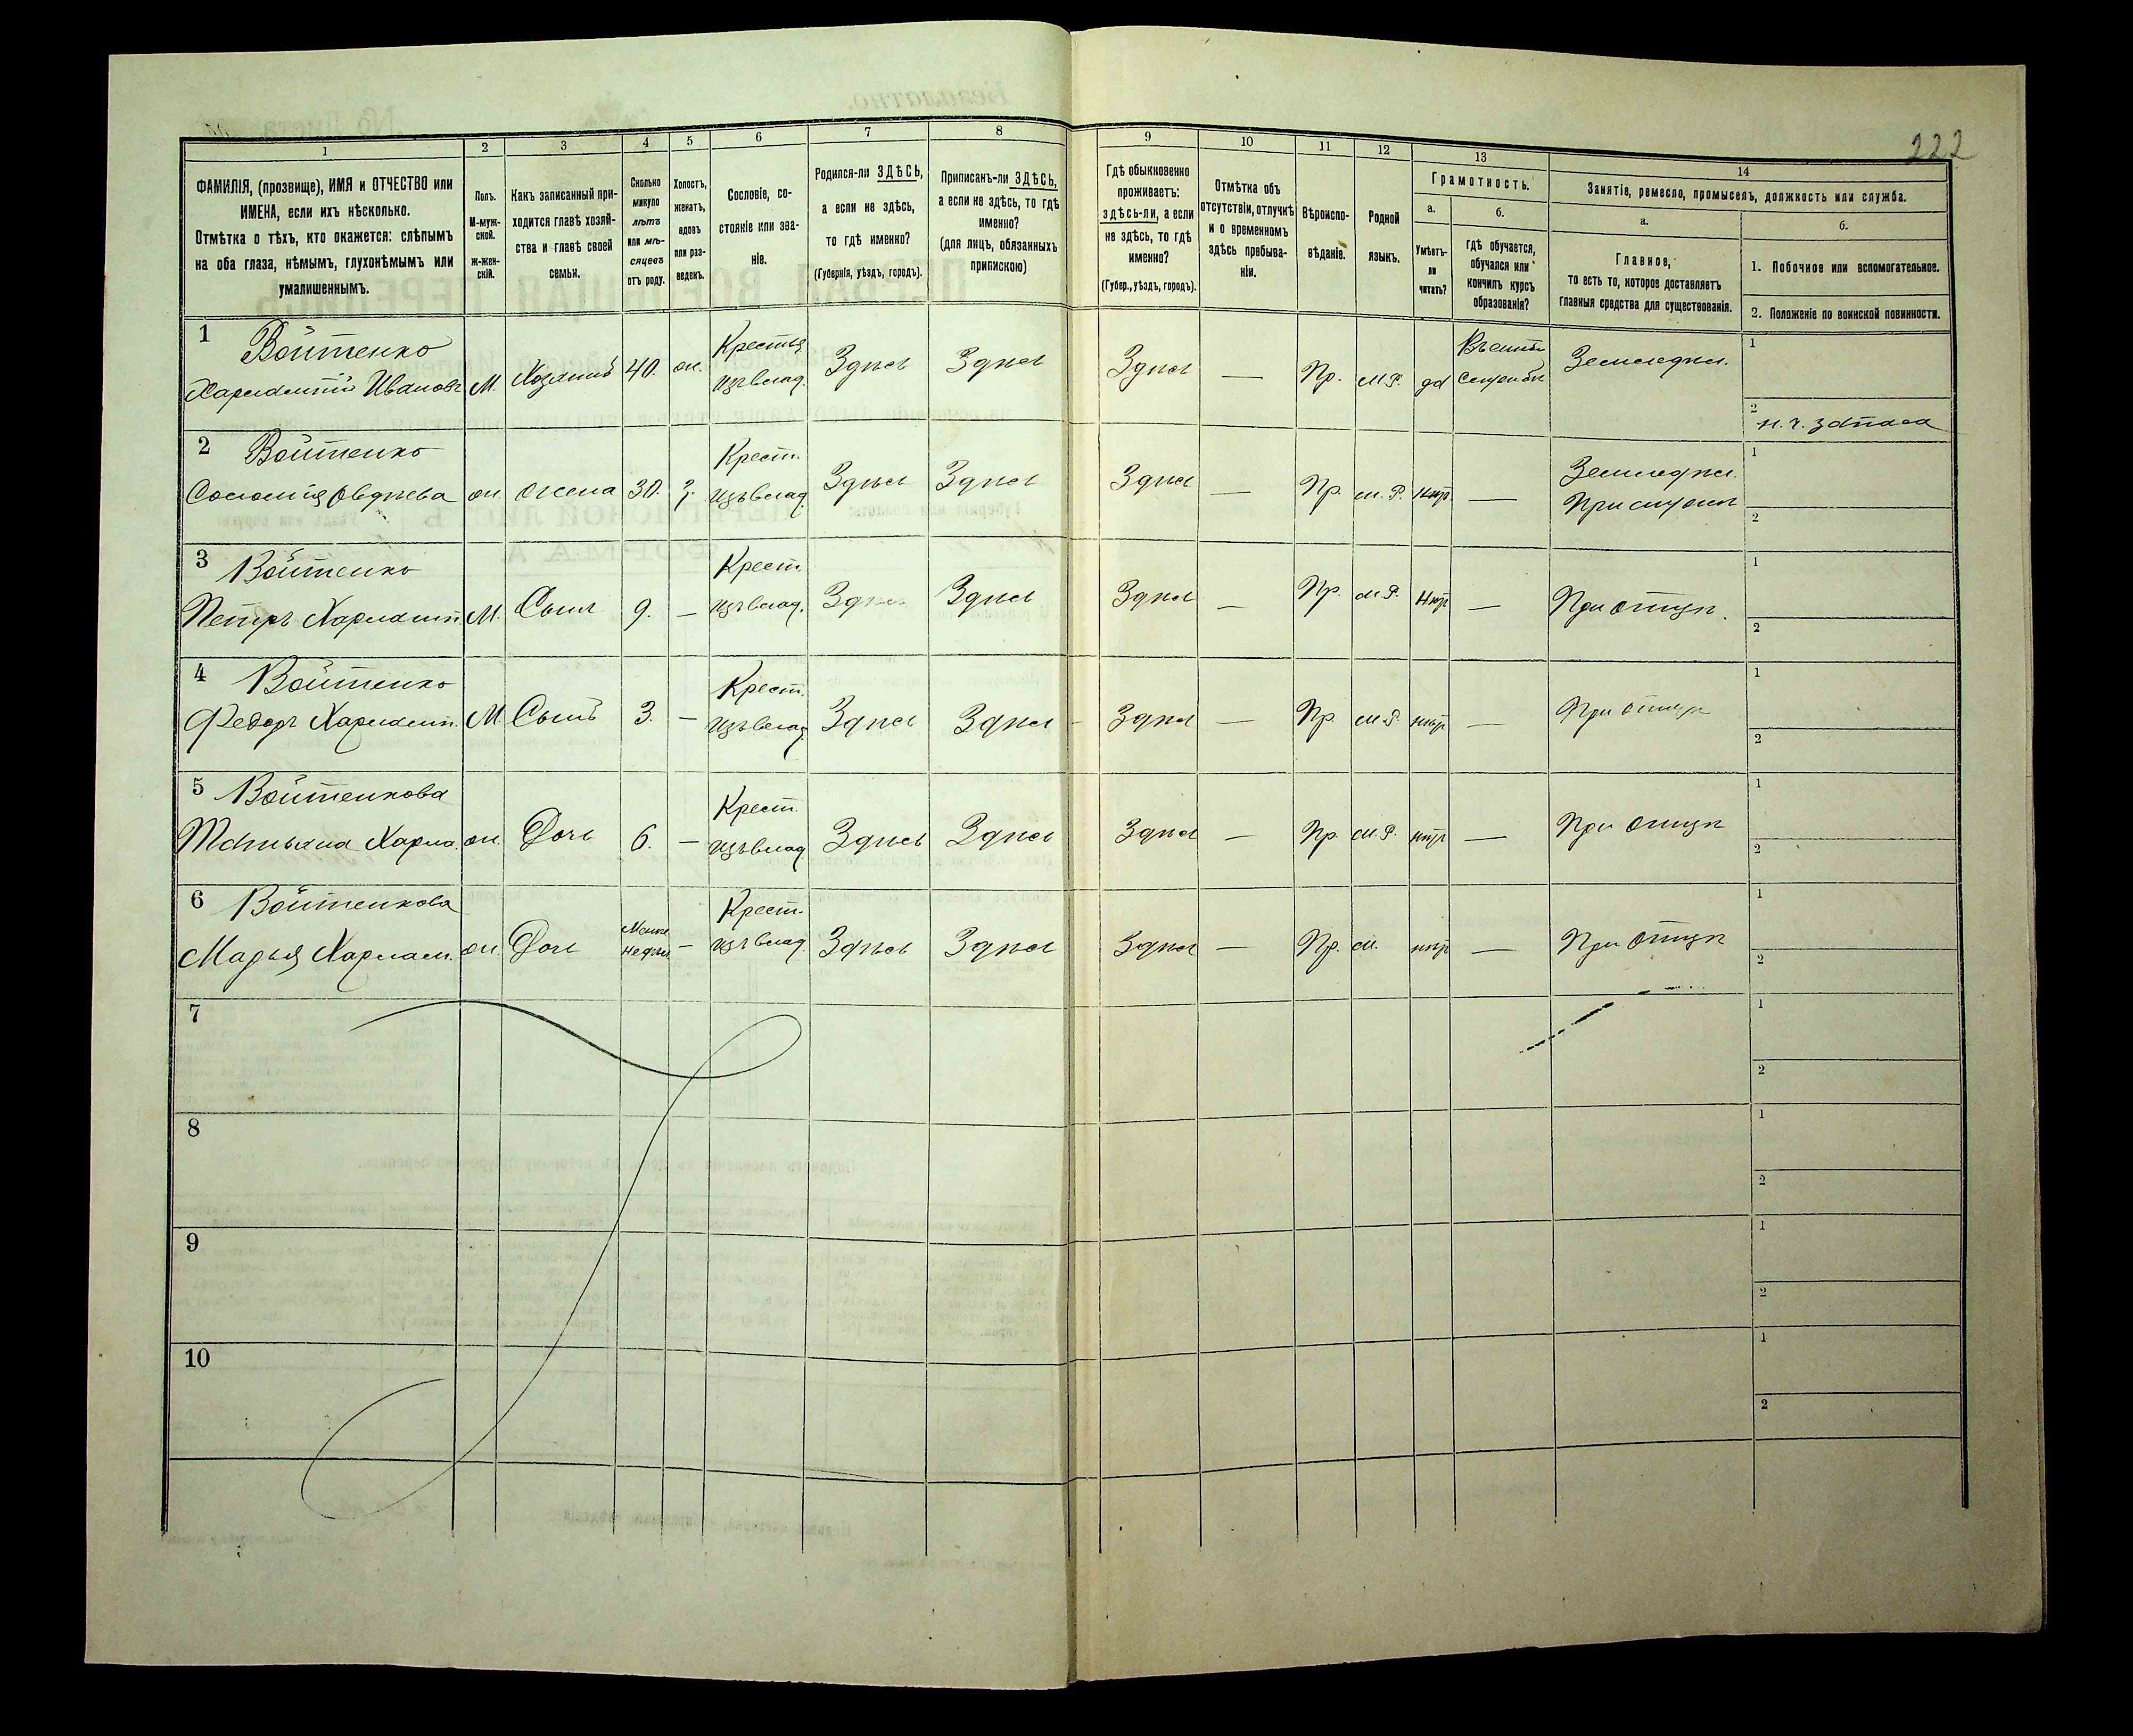 222
1
2
3
4
5
6
7
8
9
10
11
12
13
14
ФАМИЛІЯ, (прозвище), ИМЯ и ОТЧЕСТВО или
ИМЕНА, если ихъ нѣсколько.
Отмѣтка о тѣхъ, кто окажется: слѣпымъ
на оба глаза, нѣмымъ, глухонѣмымъ или
умалишеннымъ.
Полъ.
М-муж-
ской.
ж-жен-
скій.
Какъ записанный при-
ходится главѣ хозяй-
ства и главѣ своей
семьи.
Сколько
минуло
лѣтъ
или мѣ-
сяцевъ
отъ роду.
Холостъ,
женатъ,
вдовъ
или раз-
веденъ.
Сословіе, со-
стояніе или зва-
ніе.
Родился-ли ЗДѢСЬ,
а если не здѣсь,
то гдѣ именно?
(Губернія, уѣздъ, городъ).
Приписанъ-ли ЗДѢСЬ,
а если не здѣсь, то гдѣ
именно?
(для лицъ, обязанныхъ
припискою)
Гдѣ обыкновенно
проживаетъ:
здѣсь-ли, а если
не здѣсь, то гдѣ
именно?
(Губер., уѣздъ, городъ).
Отмѣтка объ
отсутствіи, отлучкѣ
и о временномъ
здѣсь пребыва-
ніи.
Вѣроиспо-
вѣданіе.
Родной
языкъ.
Грамотность.
а.
Умѣетъ-
ли
читать?
б.
гдѣ обучается,
обучался или
кончилъ курсъ
образованія?
Занятіе, ремесло, промыселъ, должность или служба.
а.
Главное,
то есть то, которое доставляетъ
главныя средства для существованія.
б.
1. Побочное или вспомогательное.
2. Положеніе по воинской повинности.
1 Войтенко
Харлампій Ивановъ М. Хозяинъ 40. ж. Крестья изъ влад. Здѣсь Здѣсь Здѣсь — Пр. М.Р. да Земледѣл.
1
2 н. ч. запаса
2 Войтенко
Соломія Овдѣева ж. жена 30. З. Крест. изъ влад. Здѣсь Здѣсь Здѣсь — Пр. М.Р. нѣт — Земледѣл.
При мужѣ
1
2
3 Войтенко
Петръ Харламп. М. Сынъ 9. — Крест. изъ влад. Здѣсь Здѣсь Здѣсь — Пр. М.Р. нѣт — При отцѣ.
1
2
4 Войтенко
Федоръ Харламп. М Сынъ 3. — Крест. изъ влад. Здѣсь Здѣсь Здѣсь — Пр. М.Р. нѣт — При отцѣ
1
2
5 Войтенкова
Татьяна Харла. ж. Дочь 6. — Крест. изъ влад. Здѣсь Здѣсь Здѣсь — Пр. М.Р. нѣт — При отцѣ
1
2
6 Войтенкова
Марья Харлам. ж. Дочь Менѣе недѣли — Крест. изъ влад. Здѣсь Здѣсь Здѣсь — Пр. М. нѣт — При отцѣ
1
2
7
1
2
8
1
2
9
1
2
10
1
2